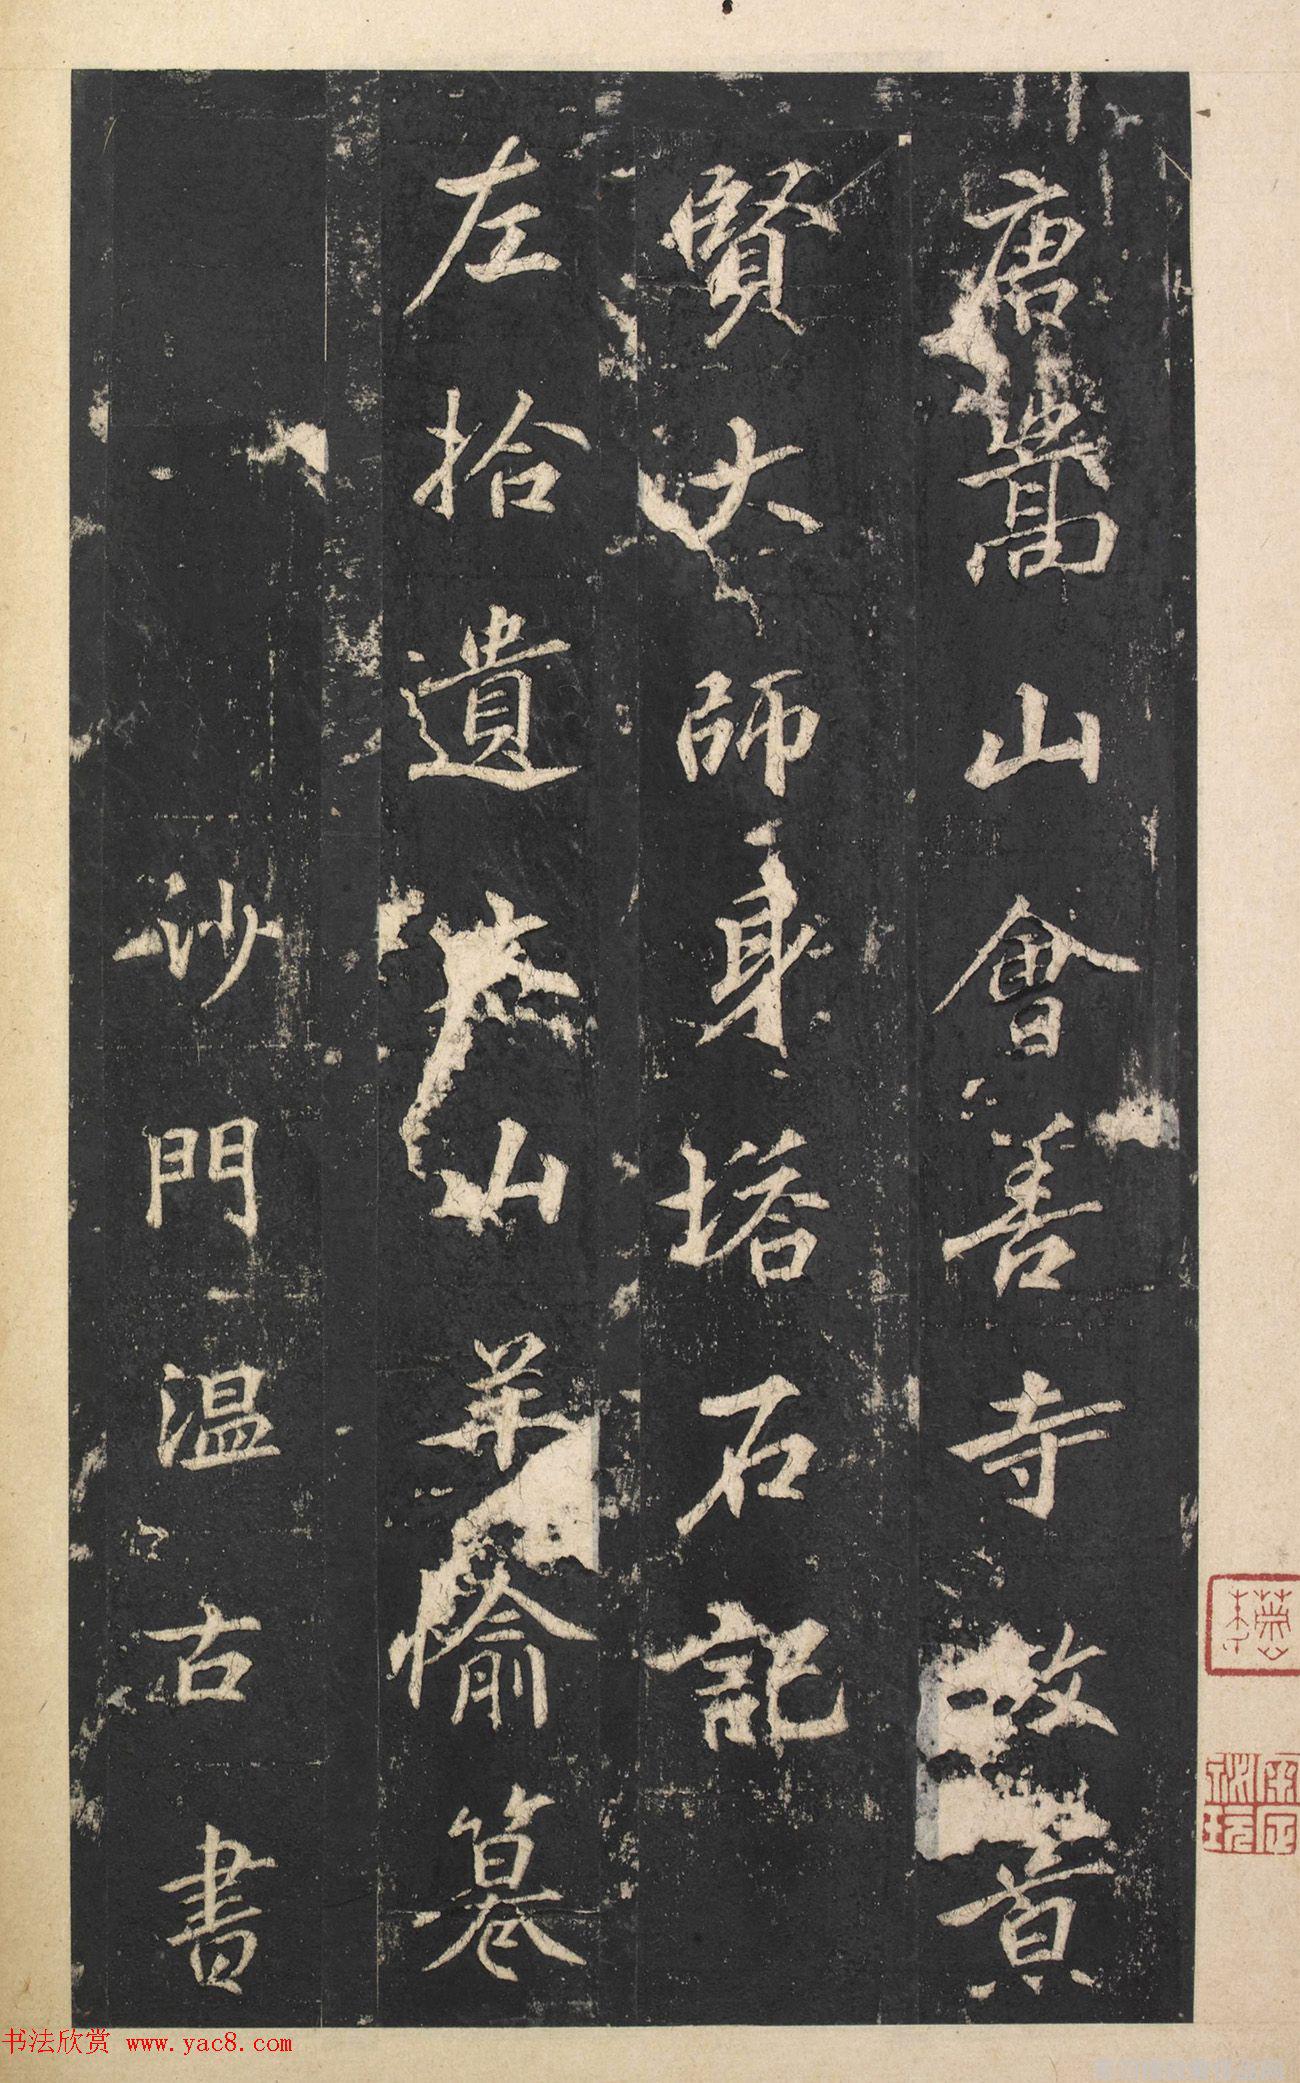 唐嵩山會善寺故景
賢大師身塔石記
左拾遺太山羊愉篹
沙門溫古書
书法欣赏 www.yac8.com